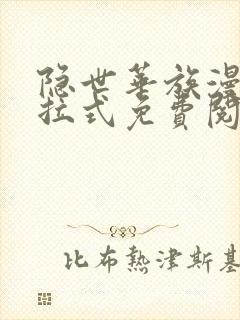 隐世華族漫
拉式免費閱
比布熱津斯基